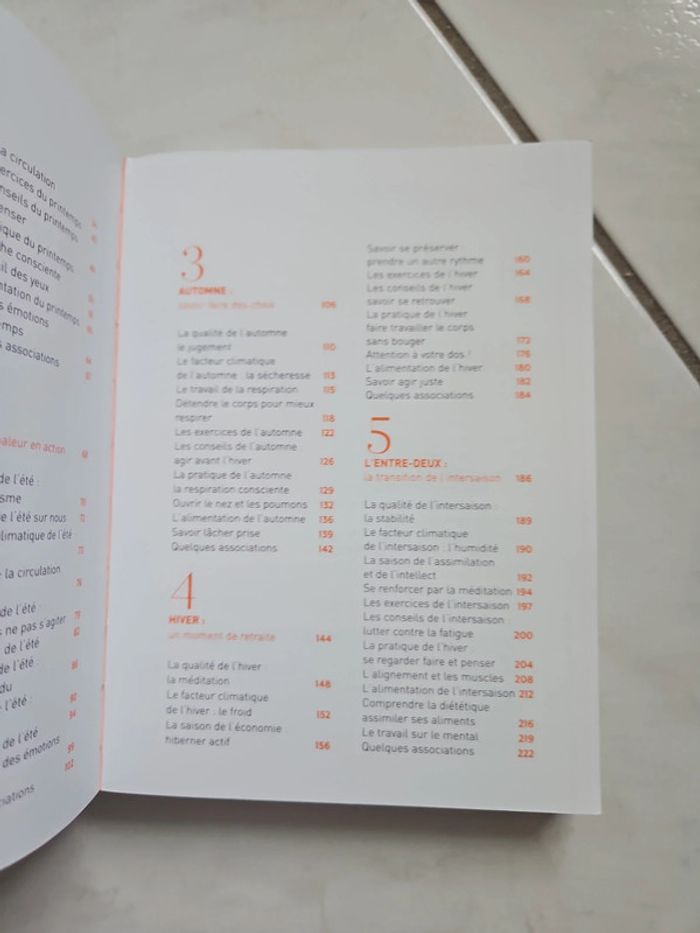 a circulation
ercices du printemps
nseils du printemps
enser
ique du printemps
he consciente
il des yeux
entation du printemps
s émotions
emps
s associations
aleur en action 68
de l'été :
sme 70
de l'été sur nous 72
climatique de l'été
73
e la circulation
76
de l'été :
s ne pas s'agiter 79
de l'été 82
de l'été :
du 88
e l'été : 90
94
de l'été
des émotions 99
102
ciations
3
AUTOMNE :
savoir faire des choix 106
La qualité de l'automne
le jugement 110
Le facteur climatique
de l'automne : la sécheresse 113
Le travail de la respiration 115
Détendre le corps pour mieux
respirer 118
Les exercices de l'automne 122
Les conseils de l'automne :
agir avant l'hiver 126
La pratique de l'automne
la respiration consciente 129
Ouvrir le nez et les poumons 132
L'alimentation de l'automne 136
Savoir lâcher prise 139
Quelques associations 142
4
HIVER :
un moment de retraite 144
La qualité de l'hiver :
la méditation 148
Le facteur climatique
de l'hiver : le froid 152
La saison de l'économie
hiberner actif 156
Savoir se préserver :
prendre un autre rythme 160
Les exercices de l'hiver 164
Les conseils de l'hiver
savoir se retrouver 168
La pratique de l'hiver
faire travailler le corps
sans bouger 172
Attention à votre dos ! 176
L'alimentation de l'hiver 180
Savoir agir juste 182
Quelques associations 184
5
L'ENTRE-DEUX :
la transition de l'intersaison 186
La qualité de l'intersaison :
la stabilité 189
Le facteur climatique
de l'intersaison : l'humidité 190
La saison de l'assimilation
et de l'intellect 192
Se renforcer par la méditation 194
Les exercices de l'intersaison 197
Les conseils de l'intersaison :
lutter contre la fatigue 200
La pratique de l'hiver :
se regarder faire et penser 204
L'alignement et les muscles 208
L'alimentation de l'intersaison 212
Comprendre la diététique
assimiler ses aliments 216
Le travail sur le mental 219
Quelques associations 222